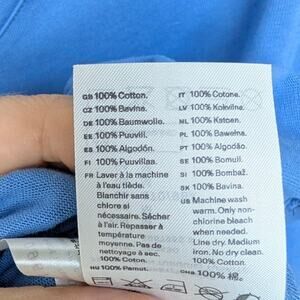 GB 100% Cotton.
CZ 100% Bavlna.
DE 100% Baumwolle.
EE 100% Puuvill.
ES 100% Algodón.
FI 100% Puuvillaa.
FR Laver à la machine
à l'eau tiède.
Blanchir sans
chlore si
nécessaire. Sécher
à l'air. Repasser à
température
moyenne. Pas de
nettoyage à sec.
100% Coton.
HU 100% Pamut.
IT 100% Cotone.
LV 100% Kokvilna.
NL 100% Katoen.
PL 100% Bawełna.
PT 100% Algodão
SE 100% Bomull.
SI 100% Bombaž.
SK 100% Bavlna.
US Machine wash
warm. Only non-
chlorine bleach
when needed.
Line dry. Medium
iron. No dry clean.
100% Cotton.
CHA 100% 棉。